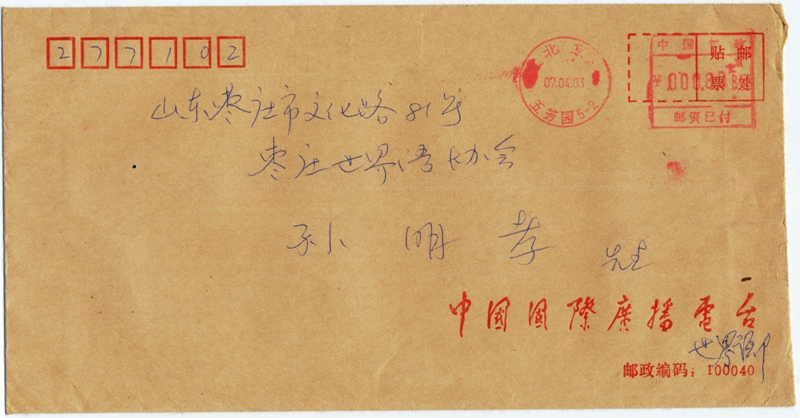 277102
北京
07.04.03
五芳园5-2
中国邮政
贴邮
票处
邮资已付
山东枣庄市文化路81号
枣庄世界语协会
孙明孝 先生
中国国际廣播電台
世界语部
邮政编码：100040